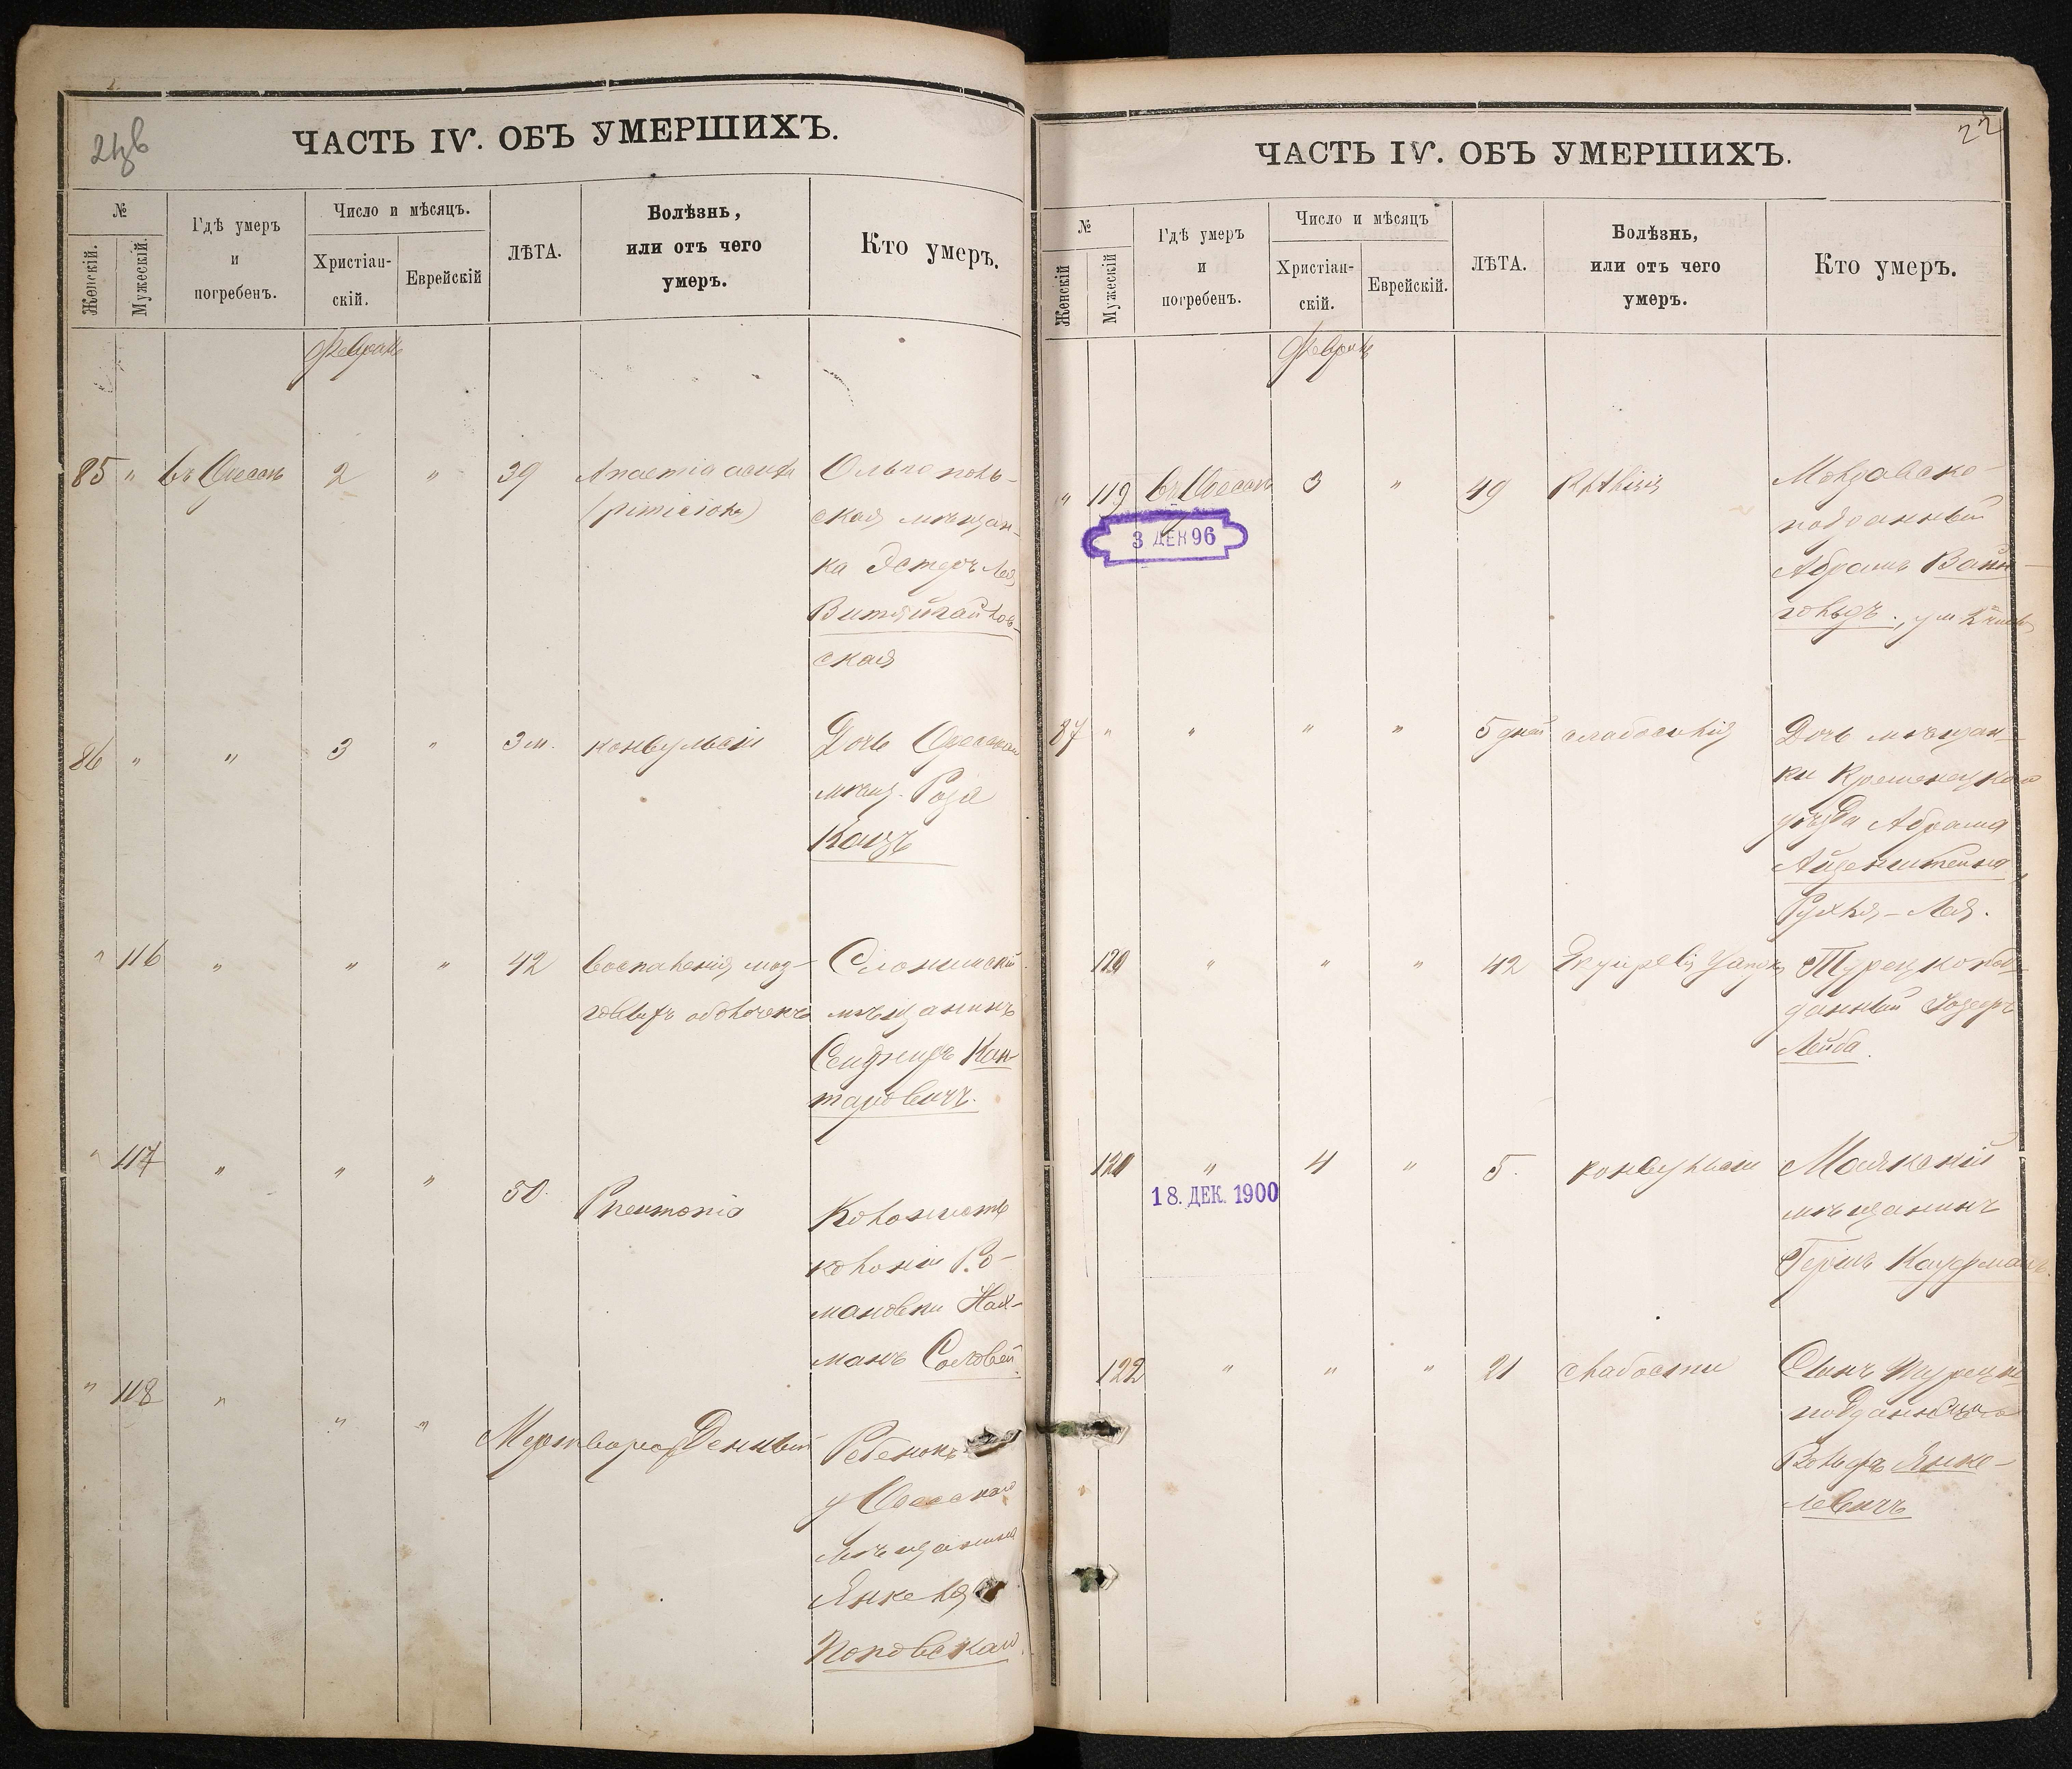 21об
ЧАСТЬ IV. ОБЪ УМЕРШИХЪ.
№
Женскій.
Мужескій.
Гдѣ умеръ
и
погребенъ.
Число и мѣсяцъ.
Христіан-
скій.
Еврейскій
ЛѢТА.
Болѣзнь,
или отъ чего
умеръ.
Кто умеръ.
Февраль
85 " въ Одессѣ 2 " 39 Anaemia acuta Ольгополь-
ская мѣщан-
ка Эстеръ Лея
ская
86 " " 3 " 3 м. конвульсіи Дочь Одесскаго
мѣщ. Роза
Кацъ
" 116 " " " 42 воспаленія моз- Слонимскій
говыхъ оболочекъ мѣщанинъ
Кан-
таровичъ.
" 117 " " " 50. Pneumonia Колонистъ
колоніи Ро-
мановки Нах-
манъ Соловей.
" 118 " " " Мертворожденный Ребенокъ
у Одесскаго
мѣщанина
Янкеля
Поповскаго
22
ЧАСТЬ IV. ОБЪ УМЕРШИХЪ.
№
Женскій
Мужескій
Гдѣ умеръ
и
погребенъ.
Число и мѣсяцъ
Христіан-
скій.
Еврейскій.
ЛѢТА.
Болѣзнь,
или отъ чего
умеръ.
Кто умеръ.
Февраль
" 119 въ Одессѣ 3 " 49 Phthisis Молдавско-
подданный
3 ДЕК 96
Абрамъ Вайн-
гольдъ.
87 " " " " 5 дней слабосилія Дочь мѣщан-
ки Кременецкаго
уѣзда Абрама
Айзенштейна,
Рухля-Лея.
120 " " " 42 Турецкопод-
данный
Лейба.
121 " 4 " 5. конвульсіи Маякскій
18. ДЕК. 1900
мѣщанинъ
Гершъ Кауфманъ.
122 " " " 21 слабости Сынъ Турецко
подданнаго
Вольфъ Янке-
левичъ